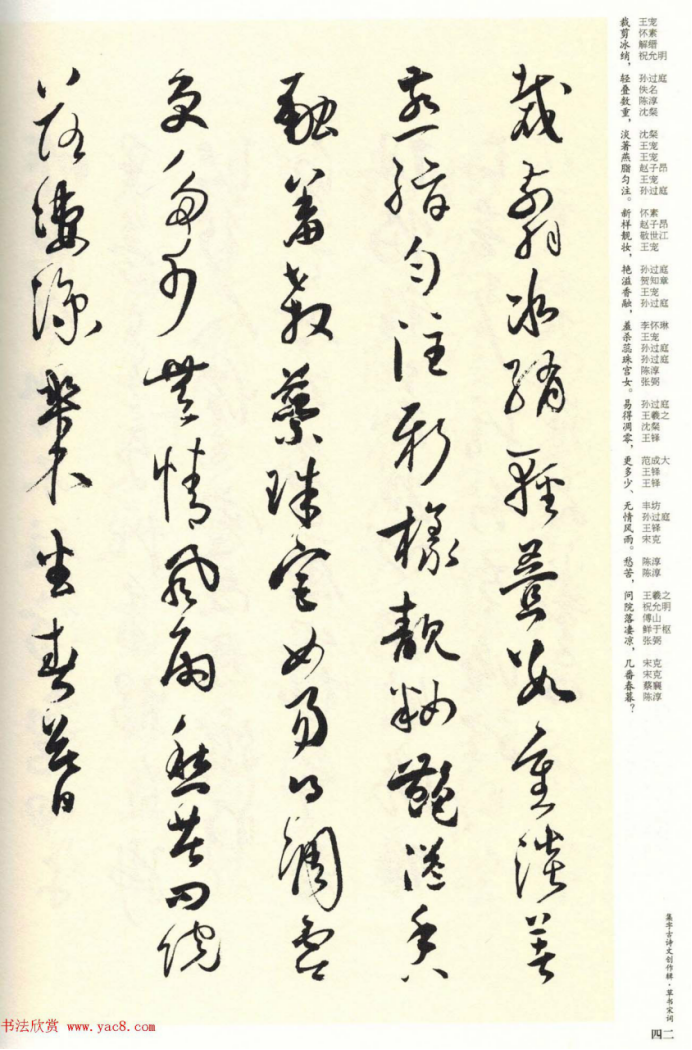 王宠 怀素 解缙 祝允明 孙过庭 佚名 陈淳 沈粲 沈粲 王宠 王宠 赵子昂 王宠 孙过庭 怀素 赵子昂 敬世江 王宠 孙过庭 贺知章 王宠 孙过庭 李怀琳 王宠 孙过庭 孙过庭 陈淳 张弼 孙过庭 王羲之 沈粲 王铎 范成大 王铎 王铎 丰坊 孙过庭 王铎 宋克 陈淳 陈淳 王羲之 祝允明 傅山 鲜于枢 张弼 宋克 宋克 蔡襄 陈淳
裁剪冰绡，轻叠数重，淡著燕脂匀注。新样靓妆，艳溢香融，羞杀蕊珠宫女。易得凋零，更多少、无情风雨。愁苦，问院落凄凉，几番春暮？
集字古诗文创作辑·草书宋词
四二
裁剪冰綃輕疊數重淡著
燕脂勻注新樣靚粧艷溢香
融羞殺蕊珠宮女易得凋零
更多少無情風雨愁苦問院
落淒涼幾番春暮
书法欣赏 www.yac8.com